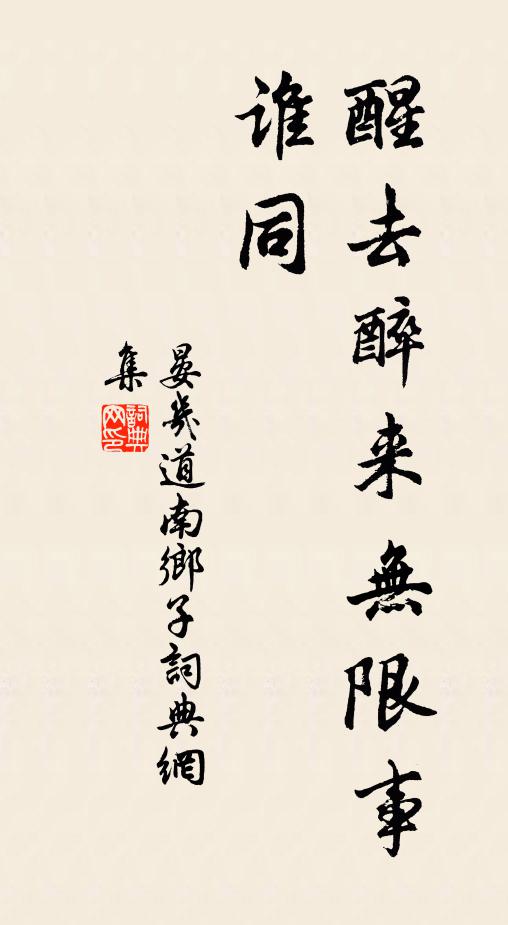 醒去醉来無限事
誰同
晏幾道南鄉子詞典網
集
詞典
网印